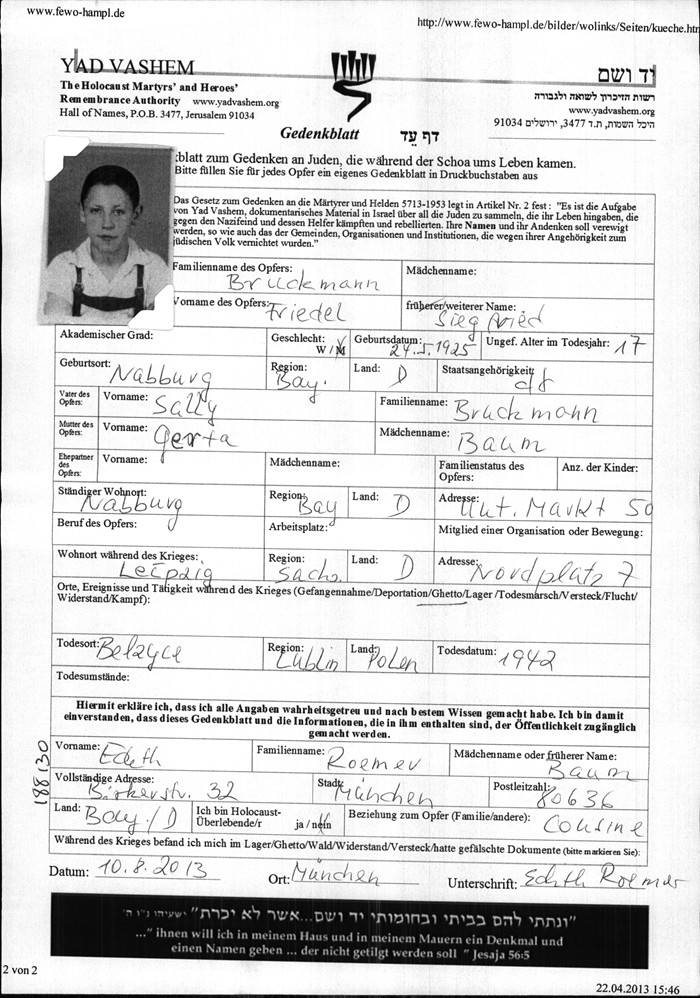 www.fewo-hampl.de
http://www.fewo-hampl.de/bilder/wolinks/Seiten/kueche.htm
YAD VASHEM
יד ושם
The Holocaust Martyrs' and Heroes'
Remembrance Authority www.yadvashem.org
Hall of Names, P.O.B. 3477, Jerusalem 91034
רשות הזיכרון לשואה ולגבורה
www.yadvashem.org
היכל השמות, ת.ד 3477, ירושלים 91034
Gedenkblatt דף עֵד
blatt zum Gedenken an Juden, die während der Schoa ums Leben kamen.
Bitte füllen Sie für jedes Opfer ein eigenes Gedenkblatt in Druckbuchstaben aus
Das Gesetz zum Gedenken an die Märtyrer und Helden 5713-1953 legt in Artikel Nr. 2 fest : "Es ist die Aufgabe
von Yad Vashem, dokumentarisches Material in Israel über all die Juden zu sammeln, die ihr Leben hingaben, die
gegen den Nazifeind und dessen Helfer kämpften und rebellierten. Ihre Namen und ihr Andenken soll verewigt
werden, so wie auch das der Gemeinden, Organisationen und Institutionen, die wegen ihrer Angehörigkeit zum
jüdischen Volk vernichtet wurden."
Familienname des Opfers: Bruckmann Mädchenname:
Vorname des Opfers: Friedel früherer/weiterer Name: Siegfried
Akademischer Grad: Geschlecht: W / M Geburtsdatum: 24.5.1925 Ungef. Alter im Todesjahr: 17
Geburtsort: Nabburg Region: Bay. Land: D Staatsangehörigkeit: dt
Vater des Opfers: Vorname: Sally Familienname: Bruckmann
Mutter des Opfers: Vorname: Gerta Mädchenname: Baum
Ehepartner des Opfers: Vorname: Mädchenname: Familienstatus des Opfers: Anz. der Kinder:
Ständiger Wohnort: Nabburg Region: Bay Land: D Adresse: Unt. Markt 50
Beruf des Opfers: Arbeitsplatz: Mitglied einer Organisation oder Bewegung:
Wohnort während des Krieges: Leipzig Region: Sachs. Land: D Adresse: Nordplatz 7
Orte, Ereignisse und Tätigkeit während des Krieges (Gefangennahme/Deportation/Ghetto/Lager /Todesmarsch/Versteck/Flucht/
Widerstand/Kampf):
Todesort: Belzyce Region: Lublin Land: Polen Todesdatum: 1942
Todesumstände:
Hiermit erkläre ich, dass ich alle Angaben wahrheitsgetreu und nach bestem Wissen gemacht habe. Ich bin damit
einverstanden, dass dieses Gedenkblatt und die Informationen, die in ihm enthalten sind, der Öffentlichkeit zugänglich
gemacht werden.
188130
Vorname: Edith Familienname: Roemer Mädchenname oder früherer Name: Baum
Vollständige Adresse: Birkerstr. 32 Stadt: München Postleitzahl: 80636
Land: Bay / D Ich bin Holocaust-Überlebende/r ja / nein Beziehung zum Opfer (Familie/andere): Cousine
Während des Krieges befand ich mich im Lager/Ghetto/Wald/Widerstand/Versteck/hatte gefälschte Dokumente (bitte markieren Sie):
Datum: 10.8.2013 Ort: München Unterschrift: Edith Roemer
"ונתתי להם בביתי ובחומותי יד ושם...אשר לא יכרת" ישעיהו נ"ו ה'
..." ihnen will ich in meinem Haus und in meinem Mauern ein Denkmal und
einen Namen geben ... der nicht getilgt werden soll " Jesaja 56:5
2 von 2
22.04.2013 15:46